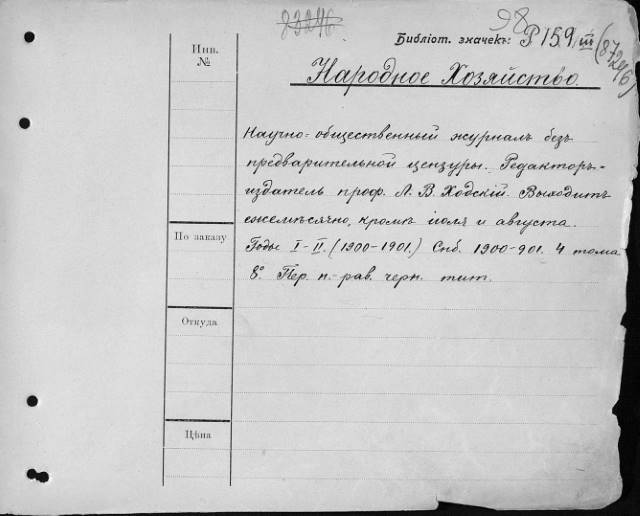 83246
98
Библіот. значекъ: P 159/III (87246)
Инв.
№
Народное Хозяйство.
Научно-общественный журналъ безъ
предварительной цензуры. Редакторъ-
издатель проф. Л. В. Ходскій. Выходитъ
ежемѣсячно, кромѣ іюля и августа.
Годы I-II. (1900-1901.) Спб. 1900-901. 4 тома
8°. Пер. п.-рав. черн. тит.
По заказу
Откуда
Цѣна